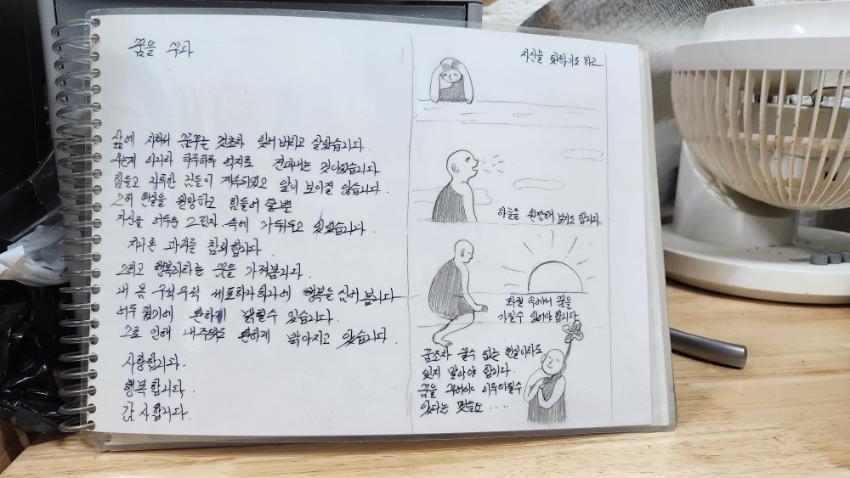 꿈을 꾸다
삶에 지쳐서 꿈꾸는 것조차 잊어버리고 살았습니다.
하루하루 억지로 견뎌내는 것이었습니다
힘들고 지루한 날들이 계속되었고 앞이 보이질 않습니다.
그저 현실을 원망하고 힘들어 할뿐
자신을 어두운 그림자 속에 가둬두고 있었습니다.
지나온 과거를 참회합니다.
그리고 행복이라는 꿈을 가져봅니다.
내 몸 구석구석 세포하나하나에 행복을 심어 봅니다
환하게 밝힐수 있습니다.
그로 인해 내주위도 환하게 밝아지고 있습니다.
사랑합니다.
행복합니다.
감사합니다.
자신을 탓하기도 하고
하늘을 원망해 보기도 합니다.
좌절 속에서 꿈을
가질수 있어야 합니다
꿈조차 꿀수 없는 현실이라도
잊지 말아야 합니다.
꿈을 꾸어야 이루어질수
있다는 것을요....